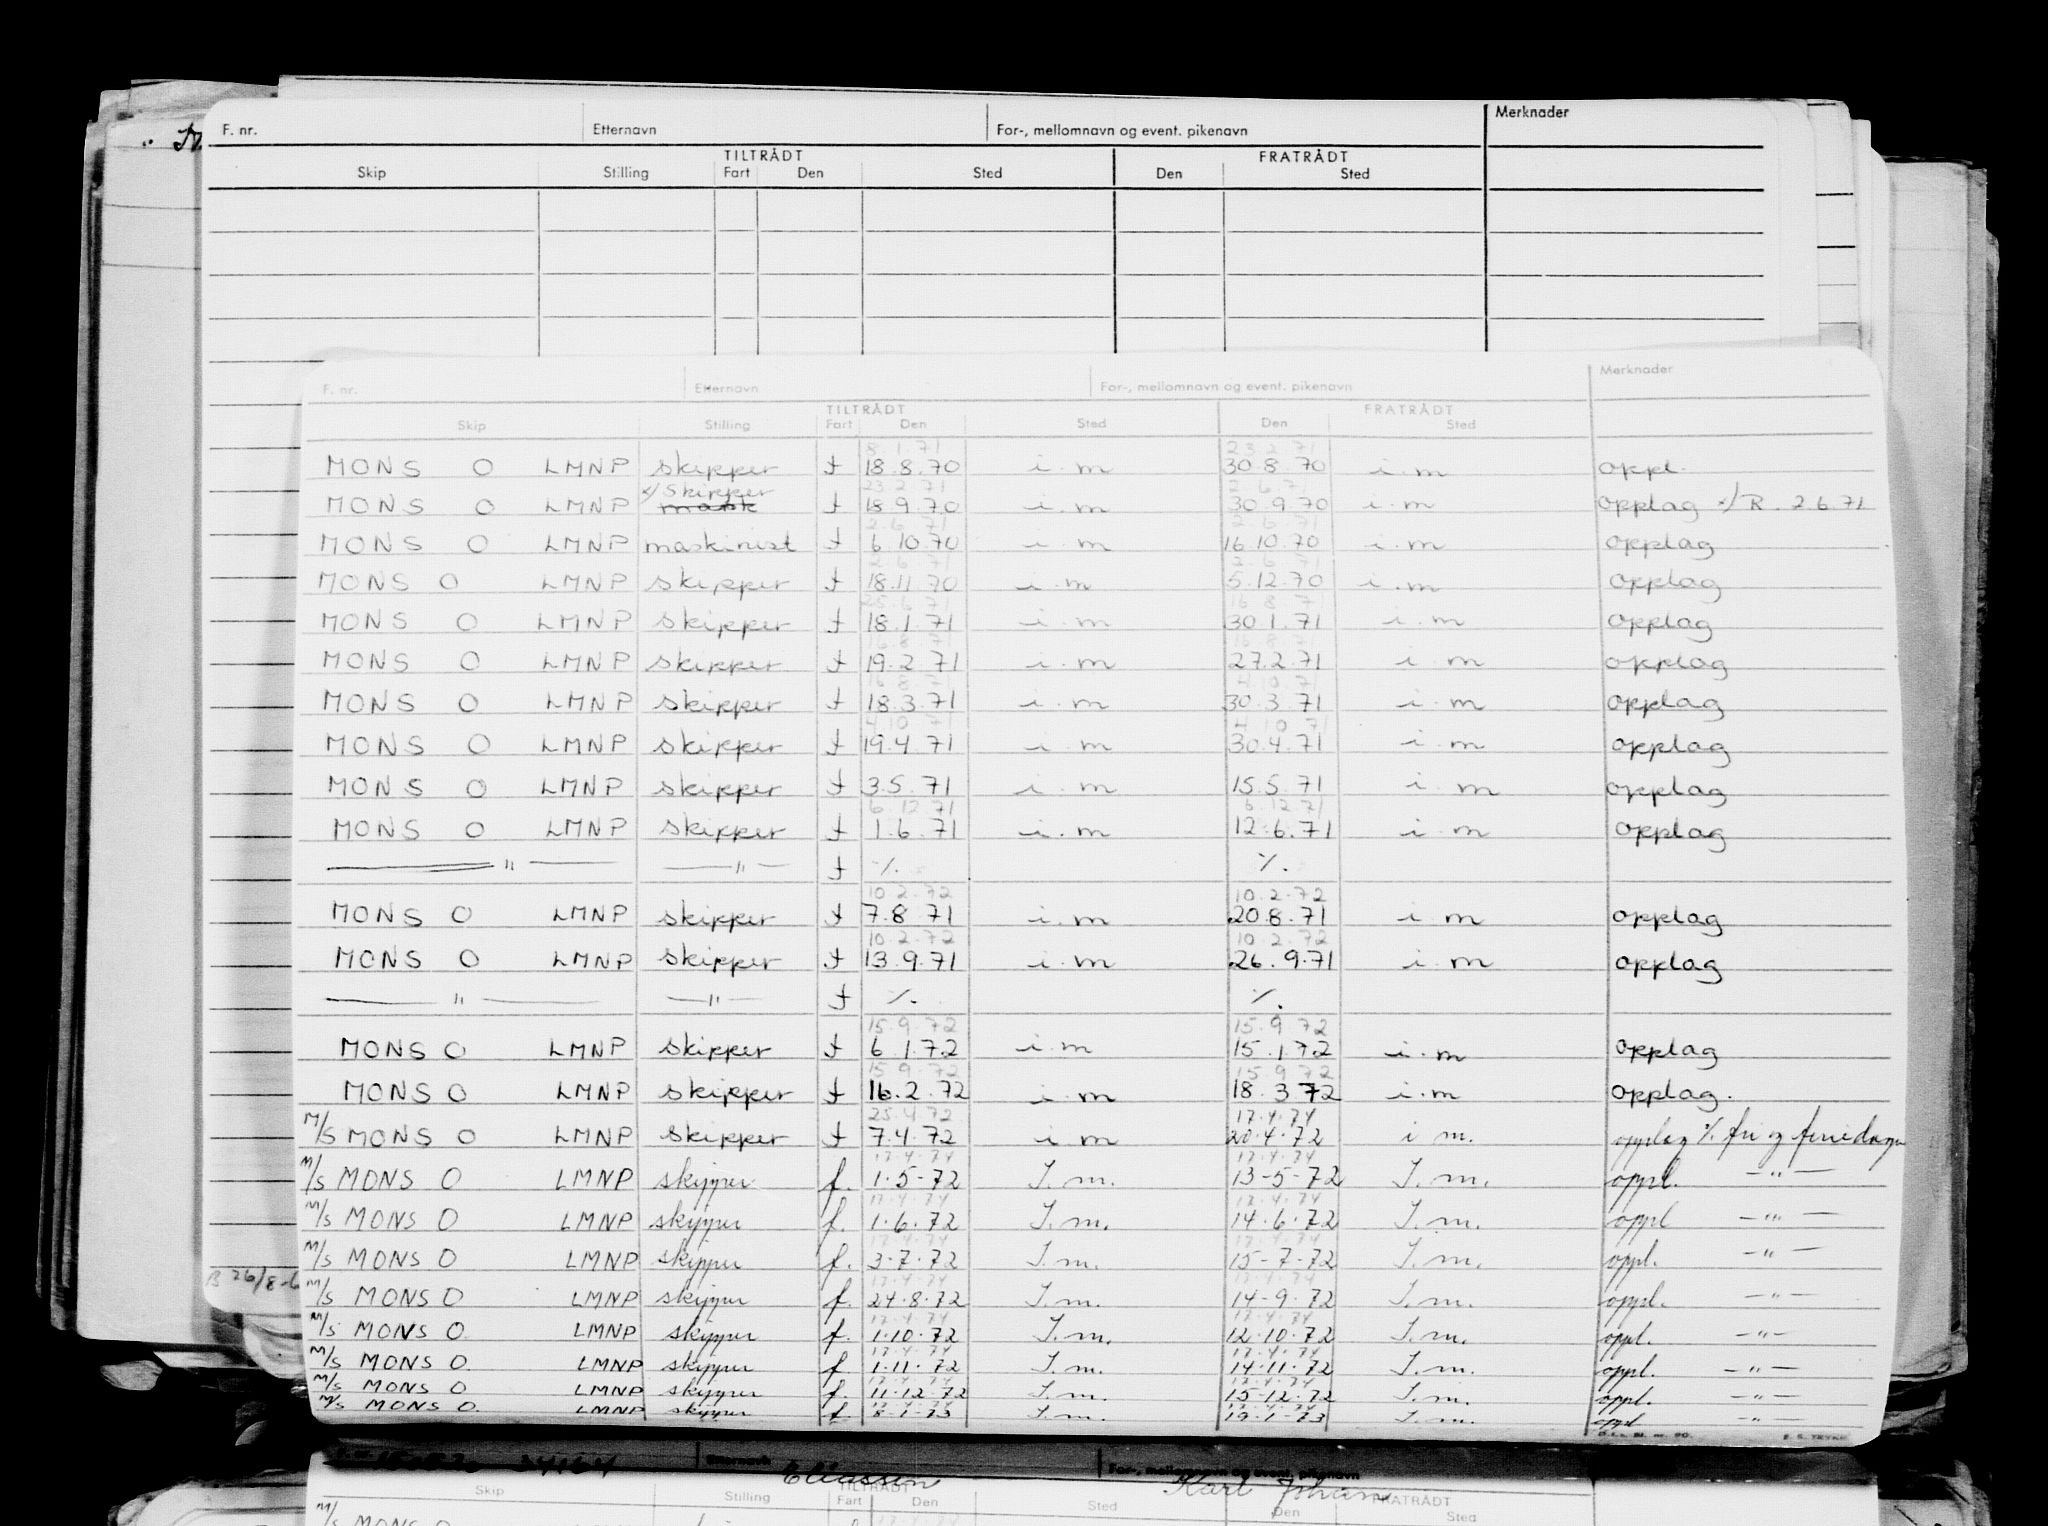 F. nr. Etternavn For-, mellomnavn og event. pikenavn Merknader
TILTRÅDT FRATRÅDT
Skip Stilling Fart Den Sted Den Sted
F. nr. Etternavn For-, mellomnavn og event. pikenavn Merknader
TILTRÅDT FRATRÅDT
Skip Stilling Fart Den Sted Den Sted
8.1.71 23.2.71
MONS O LMNP skipper t 18.8.70 i.m 30.8.70 i.m oppl.
x/ Skipper 23.2.71 2.6.71
MONS O LMNP mask t 18.9.70 i.m 30.9.70 i.m opplag x/ R. 2.6.71
2.6.71 2.6.71
MONS O LMNP maskinist t 6.10.70 i.m 16.10.70 i.m opplag
2.6.71 2.6.71
MONS O LMNP skipper t 18.11.70 i.m 5.12.70 i.m opplag
25.6.71 16.8.71
MONS O LMNP skipper t 18.1.71 i.m 30.1.71 i.m opplag
16.8.71 16.8.71
MONS O LMNP skipper t 19.2.71 i.m 27.2.71 i.m opplag
16.8.71 4.10.71
MONS O LMNP skipper t 18.3.71 i.m 30.3.71 i.m opplag
4.10.71 4.10.71
MONS O LMNP skipper t 19.4.71 i.m 30.4.71 i.m opplag
MONS O LMNP skipper t 3.5.71 i.m 15.5.71 i.m opplag
6.12.71 6.12.71
MONS O LMNP skipper t 1.6.71 i.m 12.6.71 i.m opplag
— " — — " — t %. %.
10.2.72 10.2.72
MONS O LMNP skipper t 7.8.71 i.m 20.8.71 i.m opplag
10.2.72 10.2.72
MONS O LMNP skipper t 13.9.71 i.m 26.9.71 i.m opplag
— " — — " — t %. %.
15.9.72 15.9.72
MONS O LMNP skipper t 6.1.72 i.m 15.1.72 i.m opplag
15.9.72 15.9.72
MONS O LMNP skipper t 16.2.72 i.m 18.3.72 i.m opplag.
25.4.72 17.4.74
M/S MONS O LMNP skipper t 7.4.72 i m 20.4.72 i m. opplag % fri og feriedager
17.4.74 17.4.74
M/S MONS O LMNP skipper f. 1.5-72 I.m. 13-5-72 I.m. oppl. — " —
17.4.74 17.4.74
M/S MONS O LMNP skipper f. 1.6.72 I.m. 14.6.72 I.m. oppl — " —
17.4.74 17.4.74
M/S MONS O LMNP skipper f. 3-7.72 I.m. 15-7-72 I.m. oppl. — " —
B 26/8-6
17.4.74 17.4.74
M/S MONS O LMNP skipper f. 24.8.72 I.m. 14-9.72 I.m. oppl. — " —
17.4.74 17.4.74
M/S MONS O. LMNP skipper f. 1.10.72 I.m. 12.10.72 I.m. oppl. — " —
17.4.74 17.4.74
M/S MONS O. LMNP skipper f. 1.11.72 I.m. 14.11.72 I.m. oppl. — " —
17.4.74 17.4.74
M/S MONS O. LMNP skipper f. 11-12.72 I.m. 15-12.72 I.m. oppl. — " —
17.4.74 17.4.74
M/S MONS O. LMNP skipper f. 8-1-73 I.m. 19.1-73 I.m. oppl — " —
Etternavn Eliassen For-, mellomnavn og event. pikenavn Karl Johan
TILTRÅDT FRATRÅDT
Skip Stilling Fart Den Sted Den Sted
M/S MONS O